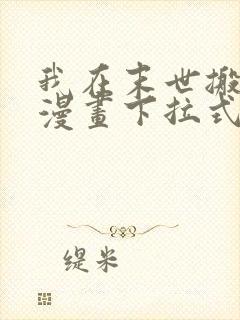 我在末世搬
漫畫下拉式
缇米